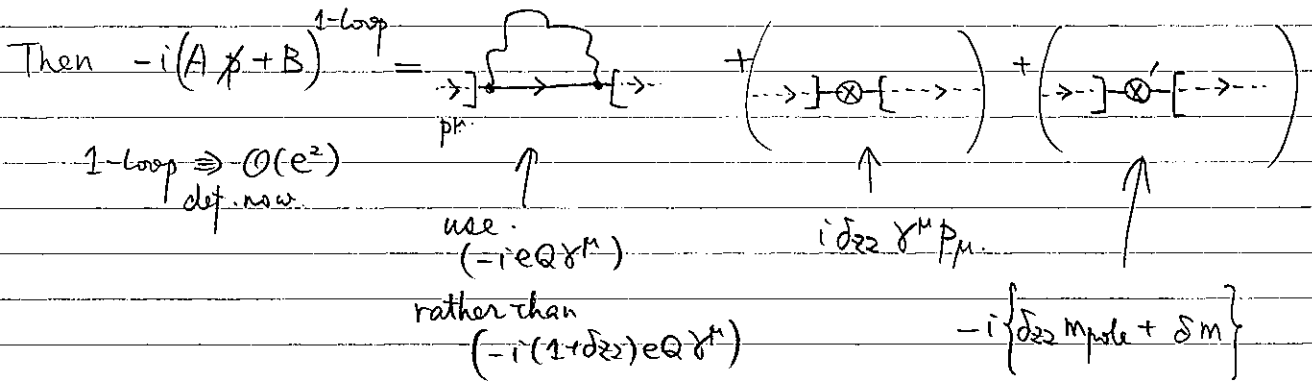 1-loop
Then -i(A p̸ + B) = + ( ) + ( )
pμ.
1-loop ⇒ O(e²)
def. now.
use.
(-ieQγ^μ)
rather than
(-i(1+δz2)eQγ^μ)
iδz2 γ^μ Pμ.
-i{δz2 mpole + δm}